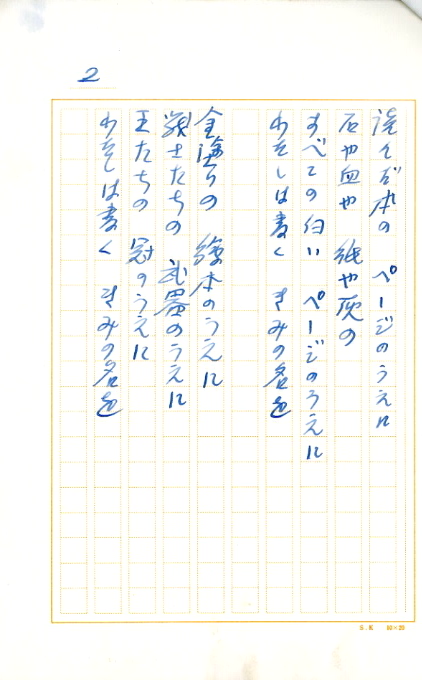 2
読んだ本の ページのうえに
石や血や 紙や灰の
すべての白い ページのうえに
わたしは書く きみの名を
金塗りの 絵本のうえに
戦士たちの 武器のうえに
王たちの 冠のうえに
わたしは書く きみの名を
S.K 10×20